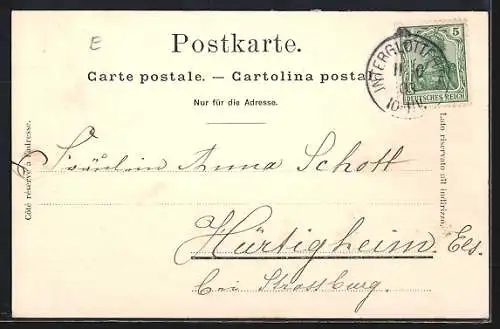 E
Postkarte.
5
DEUTSCHES REICH
Carte postale. — Cartolina postal
Nur für die Adresse.
Côté réservé à l'adresse.
Lato riservato all' indirizzo.
Fräulein Anna Schott
Hürtigheim. Els.
bei Strassburg.